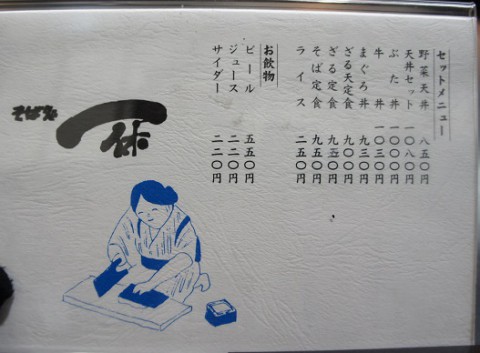 セットメニュー
野菜天丼 八五〇円
天丼セット 一〇八〇円
ぶた丼 一〇〇〇円
牛丼 一〇三〇円
まぐろ丼 九三〇円
ざる天定食 九〇〇円
ざる定食 九五〇円
そば定食 九五〇円
ライス 二五〇円
お飲物
ビール 五五〇円
ジュース 二二〇円
サイダー 二二〇円
そば処
一休